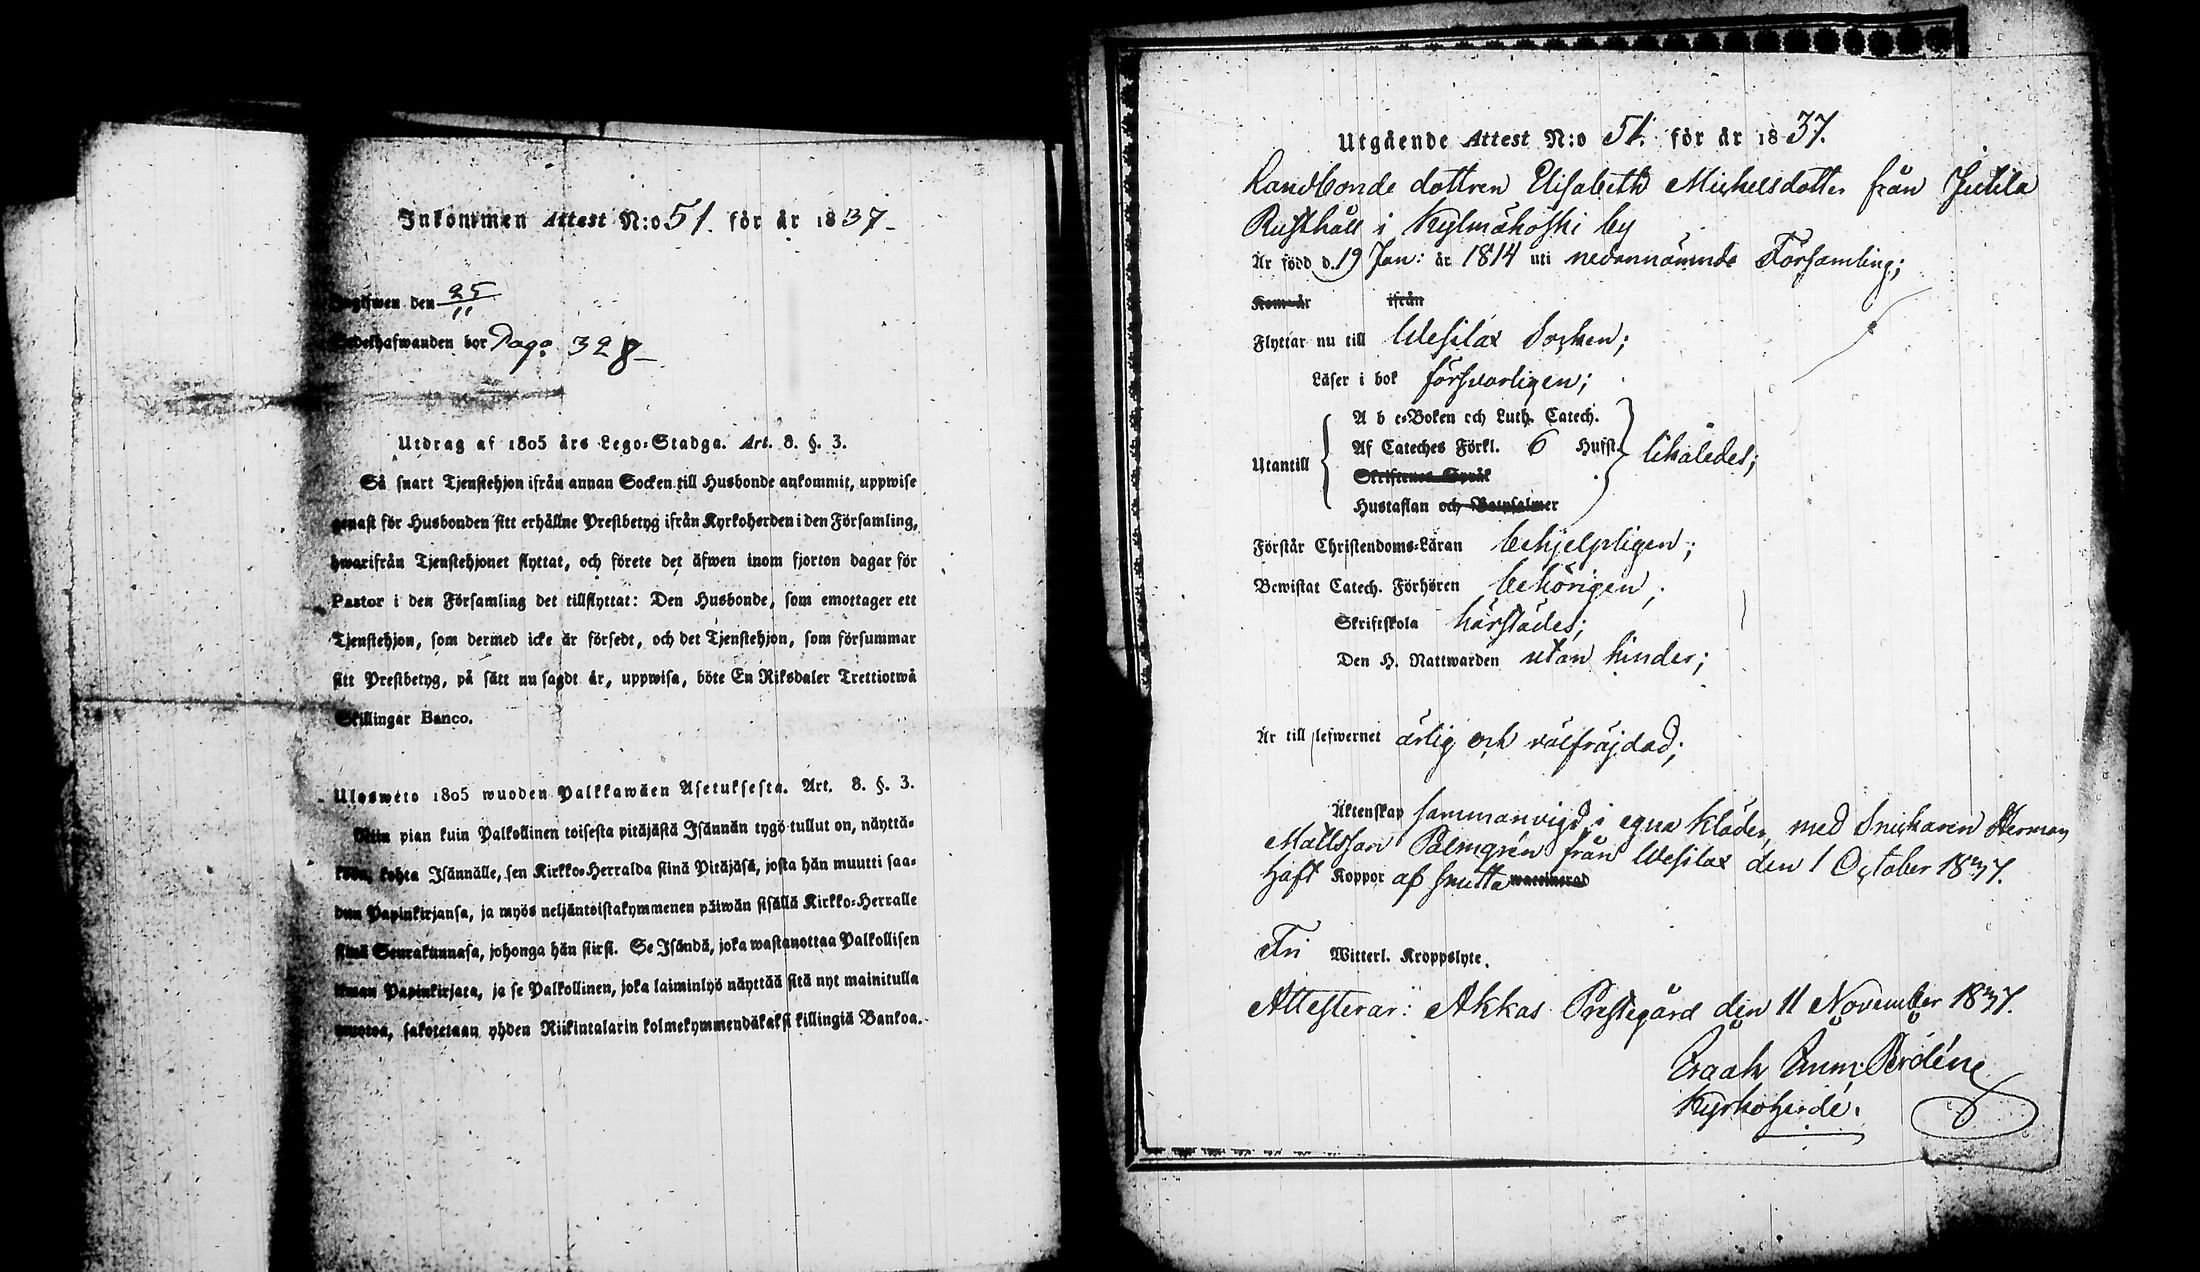 Inkommen Attest N:o 51. för år 1837-
Ingifwen den 25/11
Sedelhafwanden bor Pag: 328-
Utdrag af 1805 års Lego-Stadga. Art. 8. §. 3.
Så snart Tjenstehjon ifrån annan Socken till Husbonde ankommit, uppwise
genast för Husbonden sitt erhållne Prestbetyg ifrån Kyrkoherden i den Församling,
hwarifrån Tjenstehjonet flyttat, och förete det äfwen inom fjorton dagar för
Pastor i den Församling det tillflyttat: Den Husbonde, som emottager ett
Tjenstehjon, som dermed icke är försedt, och det Tjenstehjon, som försummar
sitt Prestbetyg, på sätt nu sagdt är, uppwisa, böte En Riksdaler Trettiotwå
Skillingar Banco.
Ulosweto 1805 wuoden Palkkawäen Asetuksesta. Art. 8. §. 3.
Niin pian kuin Palkollinen toisesta pitäjästä Isännän tygö tullut on, näyttä-
köön, kohta Isännälle, sen Kirkko-Herralda siinä Pitäjäsä, josta hän muutti saa-
dun Papinkirjansa, ja myös neljäntoistakymmenen päiwän sisällä Kirkko-Herralle
siinä Seurakunnasa, johonga hän siirsi. Se Isändä, joka wastanottaa Palkollisen
ilman Papinkirjata, ja se Palkollinen, joka laiminlyö näyttää sitä nyt mainitulla
muotoa, sakotetaan yhden Riikintalarin kolmekymmendäkaksi killingiä Bankoa.
Utgående Attest N:o 51. för år 1837.
Landbonde dottren Elisabeth Michelsdotter från Jutila
Rusthåll i Kylmäkoski by
Är född d. 19 Jan: år 1814 uti nedannämnde Församling;
Kom år ifrån
Flyttar nu till Wesilax Socken;
Läser i bok försvarligen;
A b c-Boken och Luth. Catech.
Af Cateches Förkl. 6 Hufst.
Utantill likaledes;
Skriftenes Språk
Hustaflan och Botpsalmer
Förstår Christendoms-Läran behjelpligen;
Bewistat Catech. Förhören behörigen;
Skriftskola härstädes;
Den H. Nattwarden utan hinder;
Är till lefwernet ärlig och välfräjdad;
Äktenskap sammanvigd, i egna kläder, med Snickaren Herman
Mattsson Palmgrén från Wesilax den 1 October 1837.
Haft Koppor af smitta waccinerad
Fri Witterl. Kroppslyte.
Attesterar: Akkas Prestegård den 11 November 1837.
Kyrkoherde.